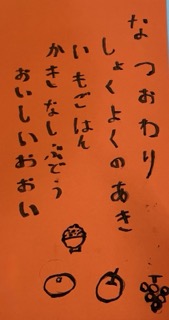 なつおわり
しょくよくのあき
いもごはん
かきなしぶどう
おいしいおおい